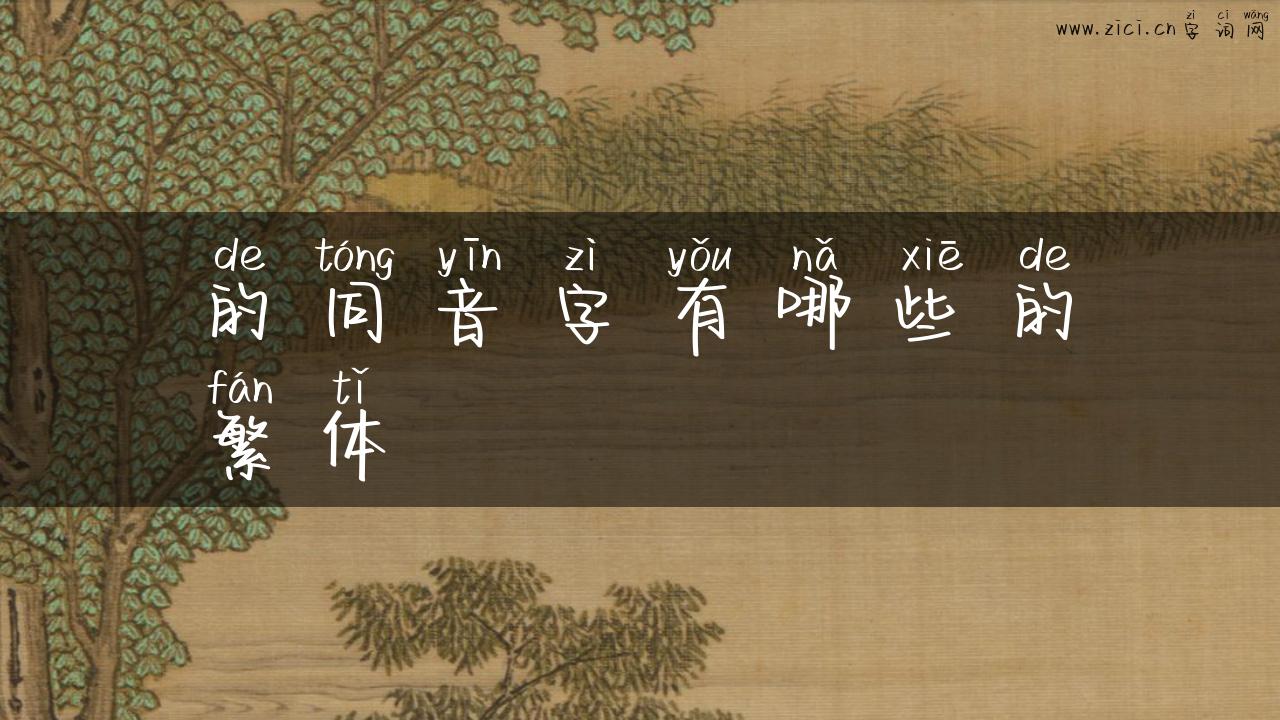 zì cí wǎng
www.zici.cn 字词网
de tóng yīn zì yǒu nǎ xiē de
的同音字有哪些的
fán tǐ
繁体